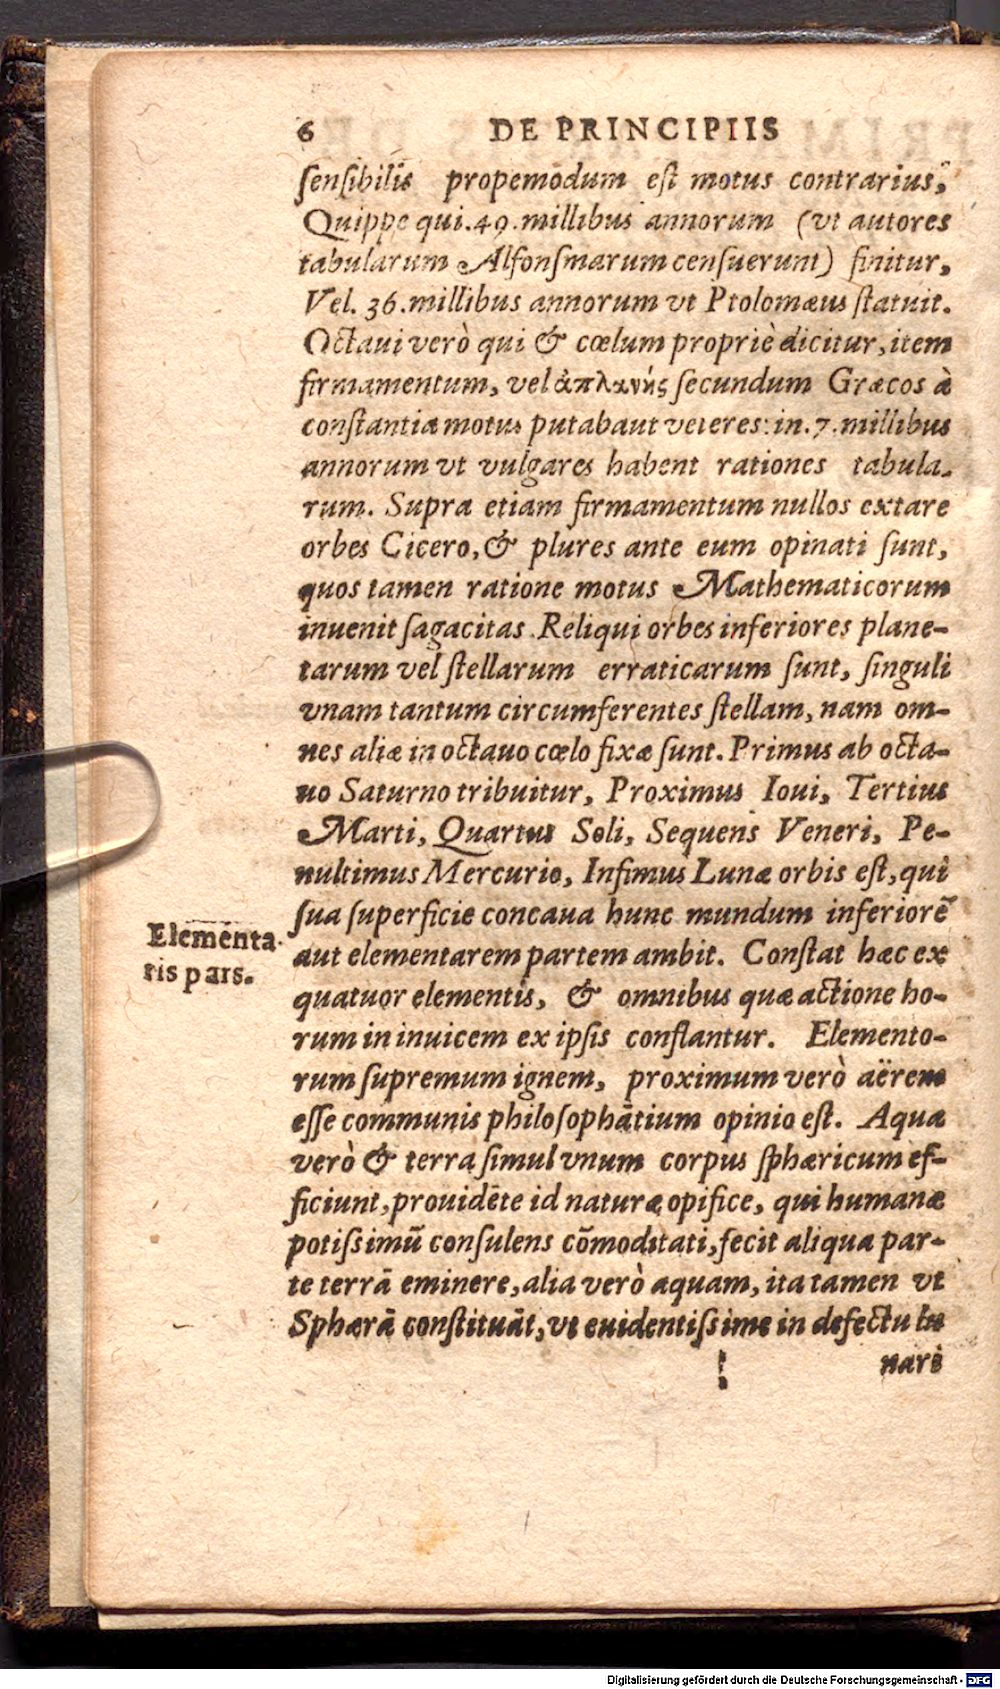 6 DE PRINCIPIIS
ſenſibilis propemodum eſt motus contrarius,
Quippe qui.49.millibus annorum (vt autores
tabularum Alfonſmarum cenſuerunt) finitur,
Vel. 36.millibus annorum vt Ptolomæus ſtatuit.
Octaui verò qui & cœlum propriè dicitur, item
firmamentum, vel ἀπλανής ſecundum Græcos à
conſtantia motus putabaut veteres: in.7.millibus
annorum vt vulgares habent rationes tabula-
rum. Supra etiam firmamentum nullos extare
orbes Cicero, & plures ante eum opinati ſunt,
quos tamen ratione motus Mathematicorum
inuenit ſagacitas. Reliqui orbes inferiores plane-
tarum vel ſtellarum erraticarum ſunt, ſinguli
vnam tantum circumferentes ſtellam, nam om-
nes aliæ in octauo cœlo fixæ ſunt. Primus ab octa-
uo Saturno tribuitur, Proximus Ioui, Tertius
Marti, Quartus Soli, Sequens Veneri, Pe-
nultimus Mercurio, Infimus Lunæ orbis eſt, qui
ſua ſuperficie concaua hunc mundum inferiorē
Elementa-
ris pars.
aut elementarem partem ambit. Conſtat hæc ex
quatuor elementis, & omnibus quæ actione ho-
rum in inuicem ex ipſis conflantur. Elemento-
rum ſupremum ignem, proximum verò aërem
eſſe communis philoſophātium opinio eſt. Aqua
verò & terra ſimul vnum corpus ſphæricum ef-
ficiunt, prouidēte id naturæ opifice, qui humanæ
potiſsimū conſulens cōmoditati, fecit aliqua par-
te terrā eminere, alia verò aquam, ita tamen vt
Sphærā conſtituāt, vt euidentiſsime in defectu lu
nari
Digitalisierung gefördert durch die Deutsche Forschungsgemeinschaft - DFG